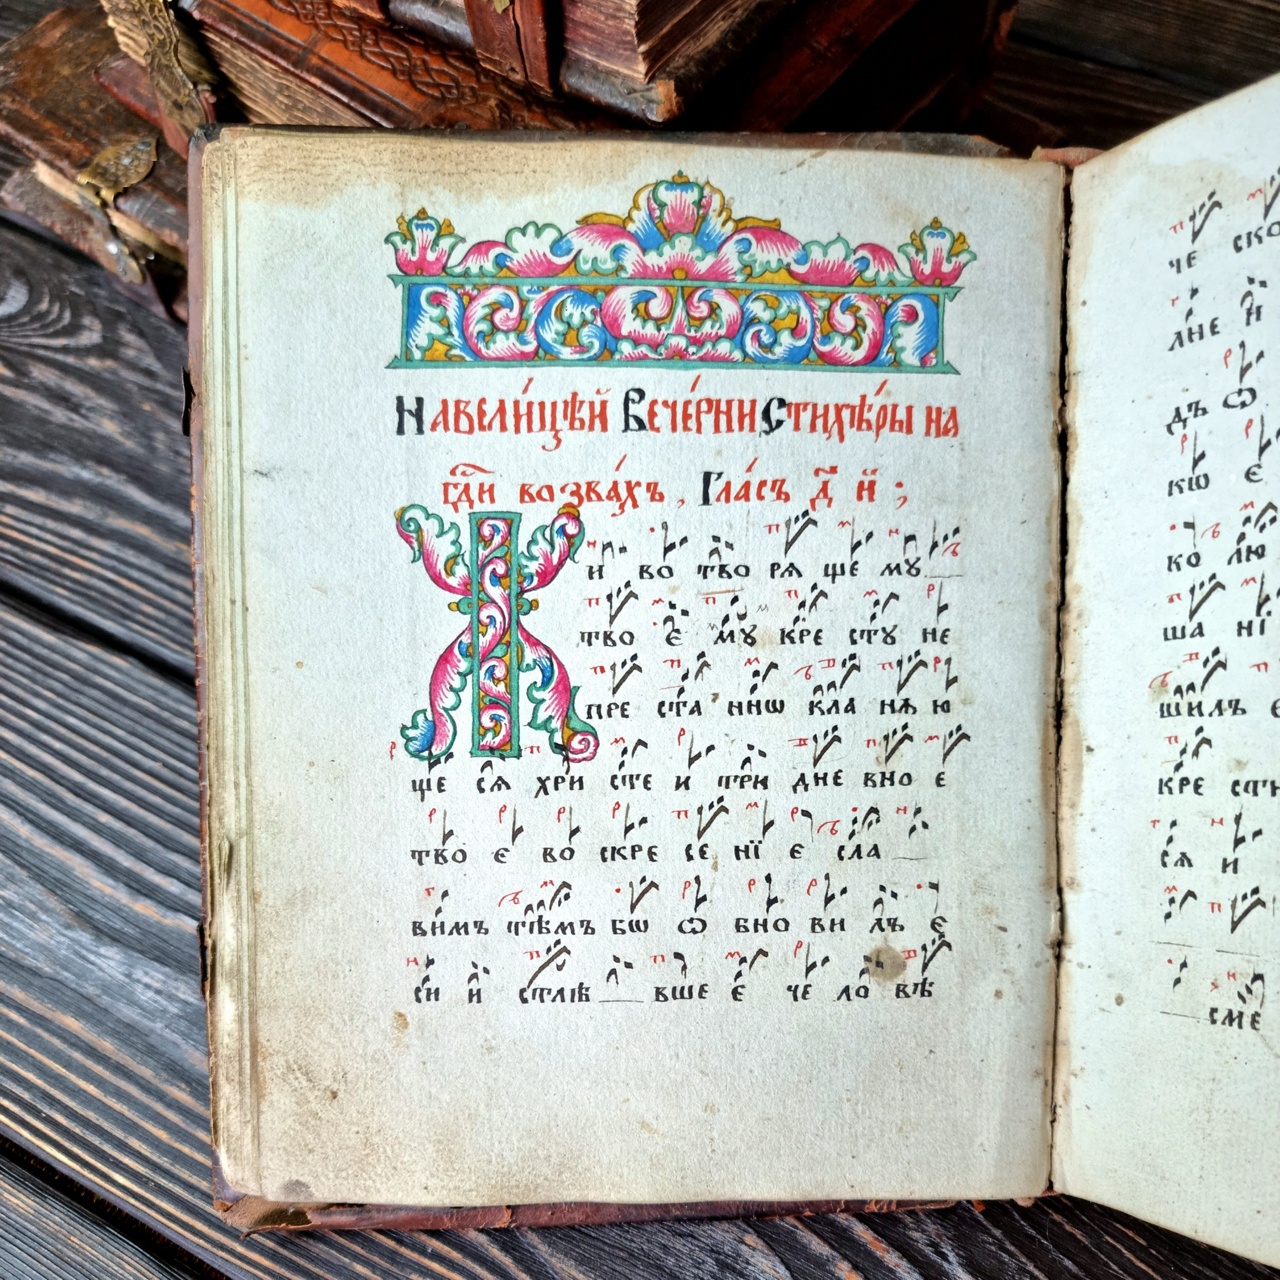 На вели́цѣй Вече́рни Стихѣ́ры на
гд҃и возва́хъ, Гла́съ д҃ й ;
Ж и во тво ря ще му
тво є му кре сту не
пре ста ннѡ кла нѧ ю
ще сѧ хри сте и три дне вно є
тво є во скре се нї є сла
вимъ тѣмъ бѡ ѡ бно ви лъ є
си и стлѣ вше є че ло вѣ
че ско
лне й
дъ ѡ
кѡ є
ко лю
ша нї
шилъ є
кре сти
сѧ и
сме